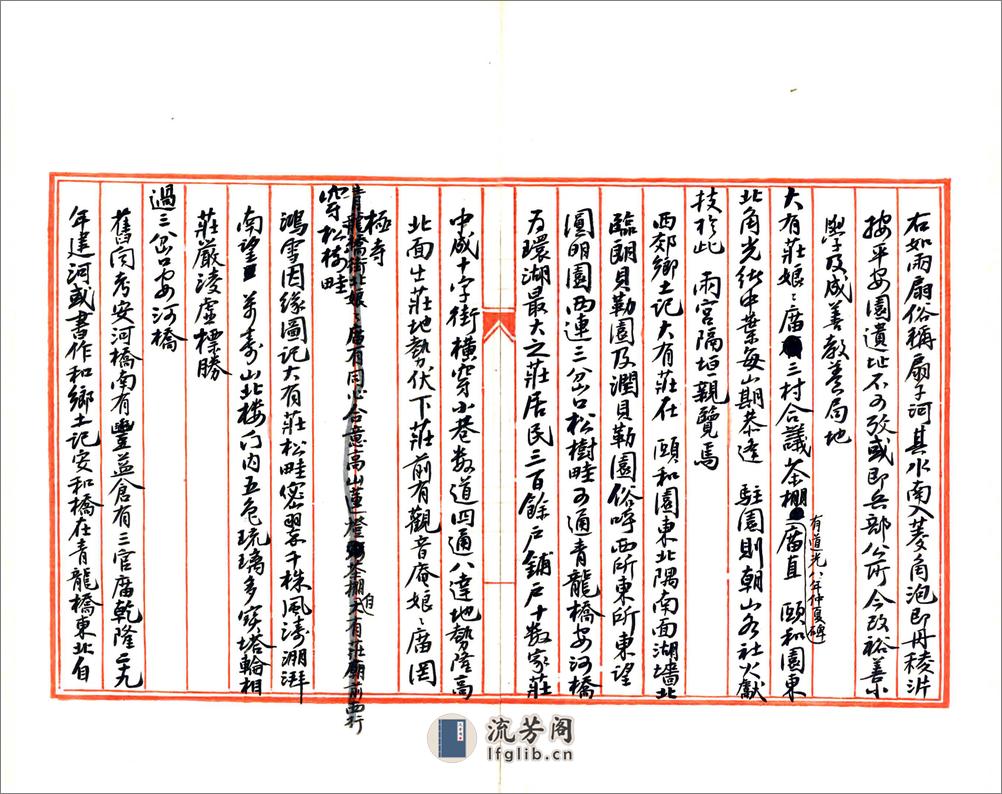 右如兩扇俗稱扇子河其水南入菱角泡即丹稜沜
按平安園遺址不可攷或即兵部公所今改裕善小
學及成善教養局地
大有莊娘〻廟三村合議茶棚廟直 頤和園東
有道光八年仲夏碑
北角光緒中葉每山期恭逢 駐園則朝山各社火獻
技於此 兩宮隔垣親覽焉
西郊鄉土記大有莊在 頤和園東北隅南面湖墻北
臨朗貝勒園及潤貝勒園俗呼西所東所東望
圓明園西連三岔口松樹畦可通青龍橋安河橋
為環湖最大之莊居民三百餘戶鋪戶十數家莊
中成十字街橫穿小巷数道四通八達地勢隆高
北面土莊地勢伏下莊前有觀音庵娘〻廟罔
極寺
青龍橋街北娘〻廟有同心合意高山 燈茶棚自大有莊廟前西行
穿松樹畦
鴻雪因緣圖記大有莊松畦密翠千株風濤淜湃
南望 萬壽山北樓門內五色琉璃多寶塔輪相
莊嚴凌虛標勝
過三岔口安河橋
舊聞考安河橋南有豐益倉有三官廟乾隆二十九
年建河或書作和鄉土記安和橋在青龍橋東北自
流芳阁
lfglib.cn